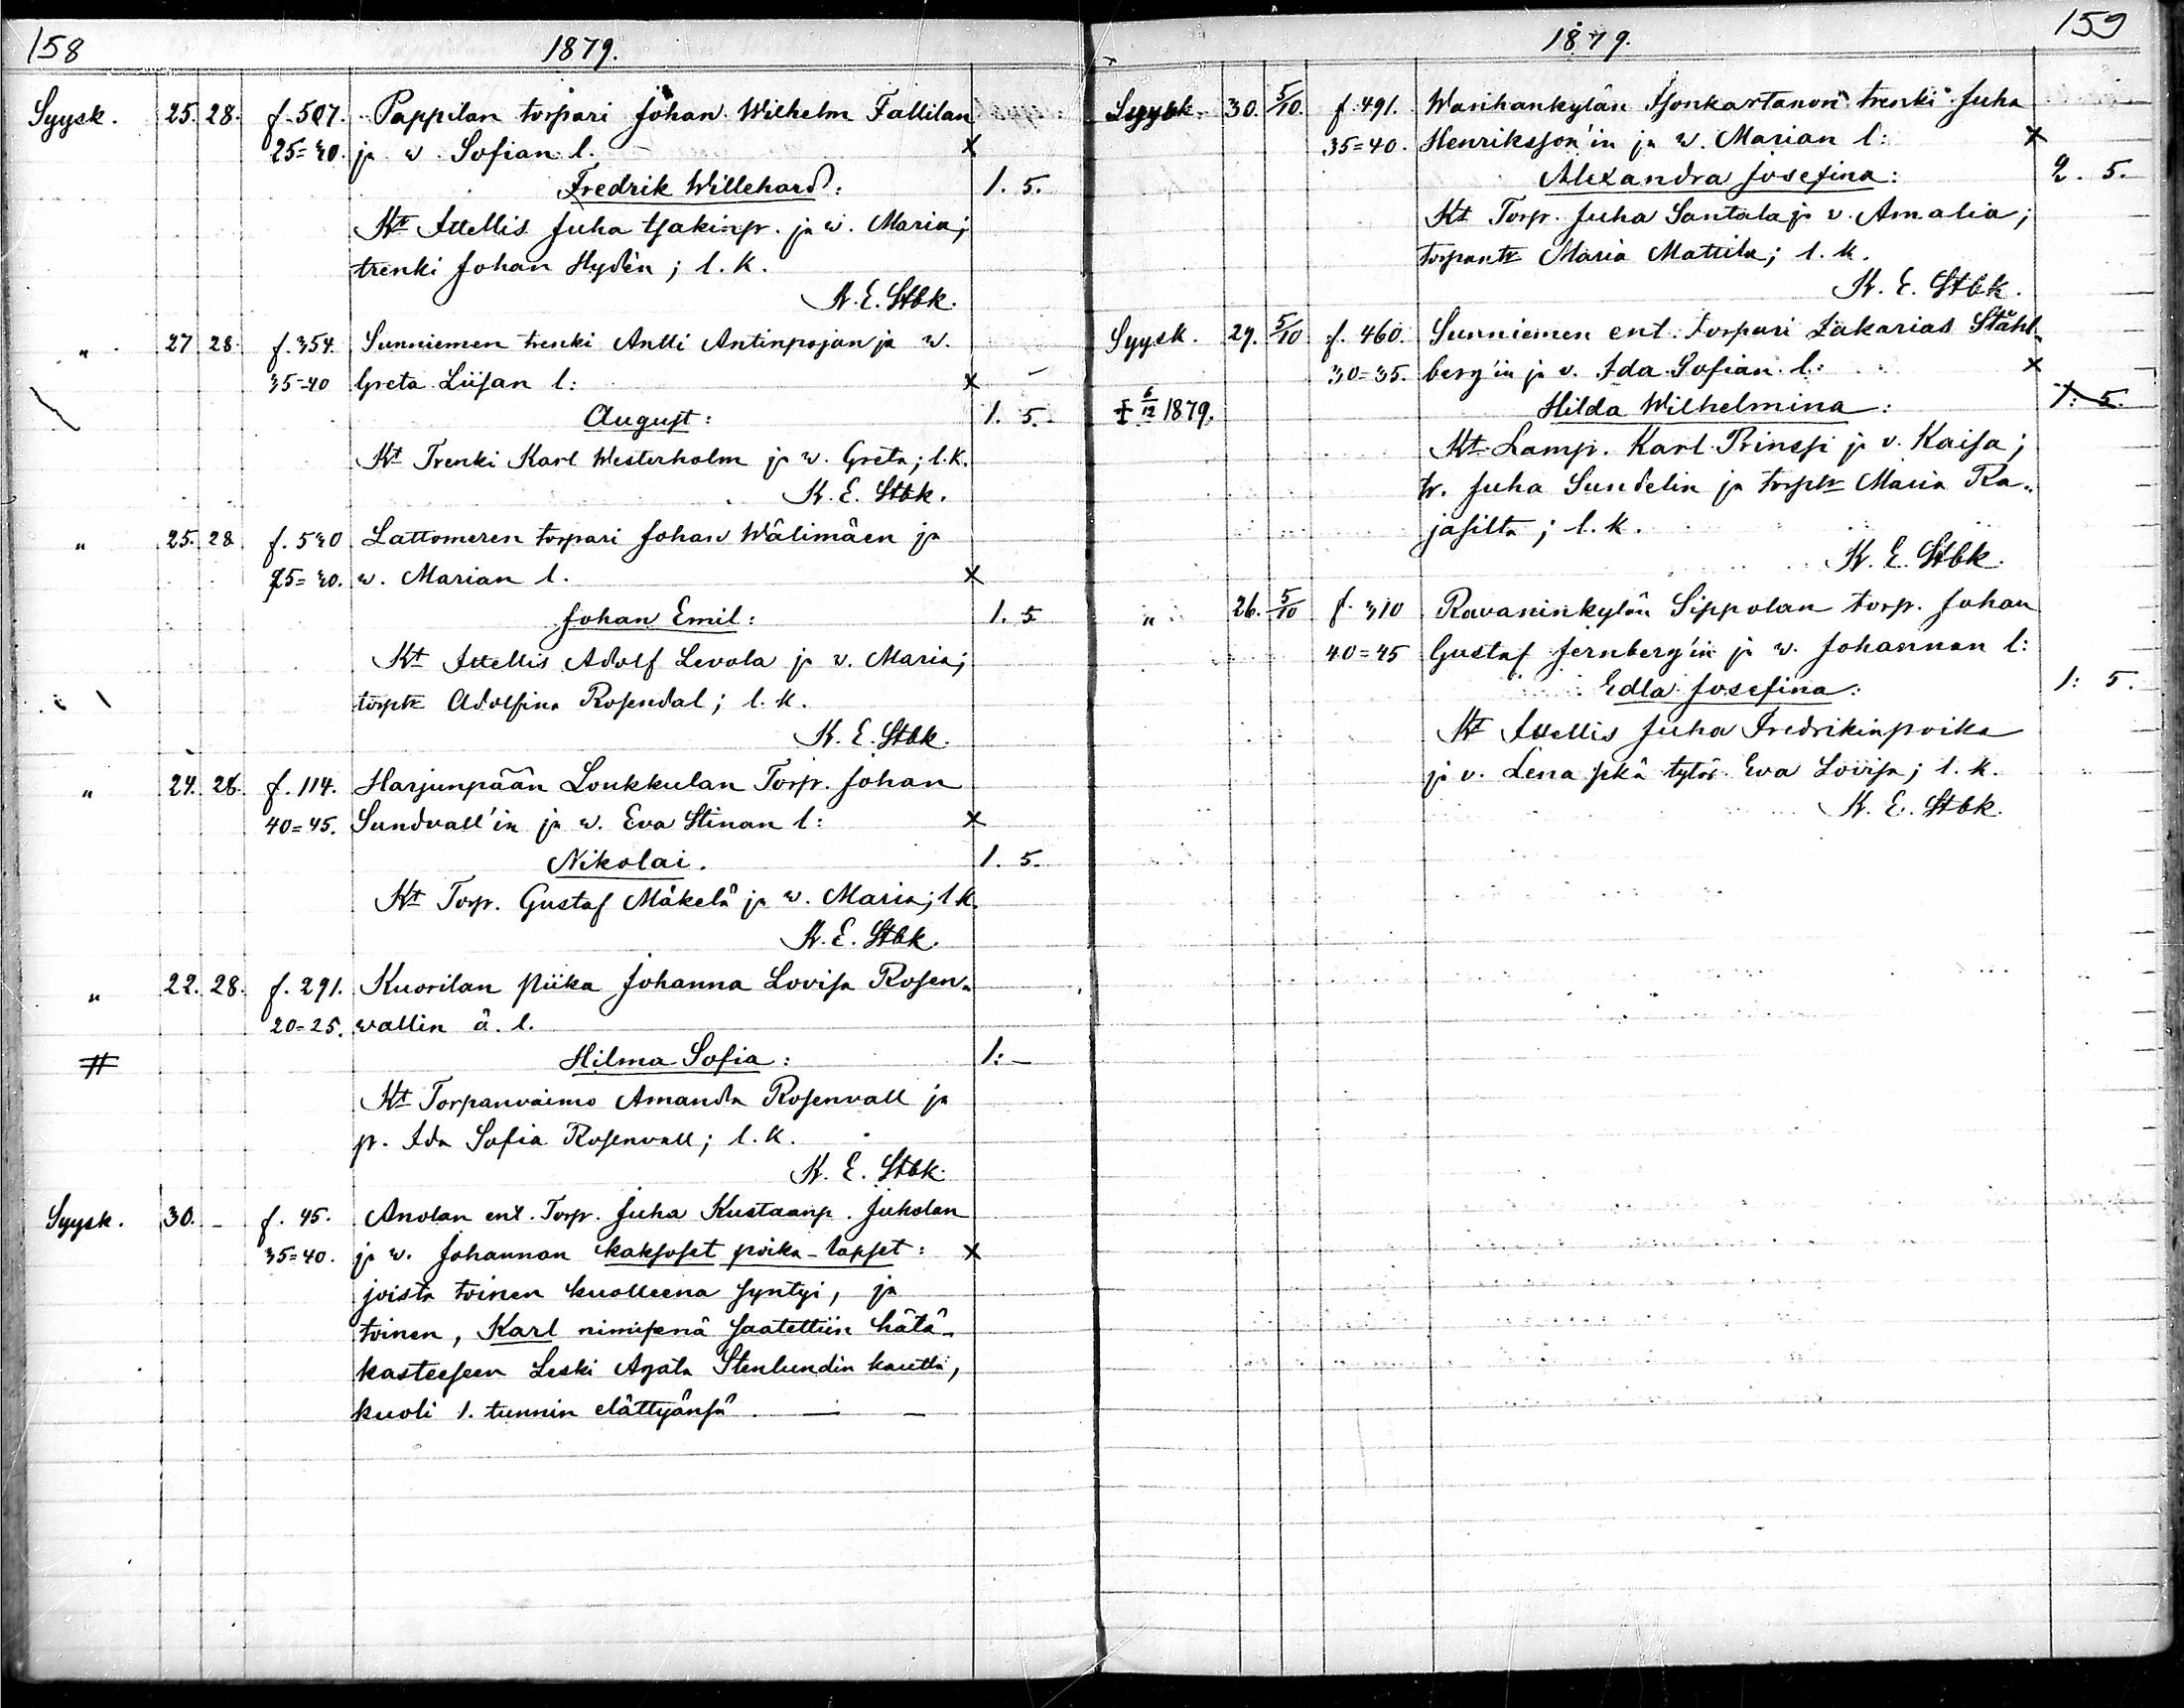 158
1879.
Syysk. 25. 28. f. 507. Pappilan torpari Johan Wilhelm Fallilan
25=30. ja w. Sofian l. x
Fredrik Willehard: 1. 5.
Kt Ittellis Juha Isakinp. ja w. Maria;
trenki Johan Hydén; l. k.
K. E. Stbk.
" 27 28. f. 354. Sunniemen trenki Antti Antinpojan ja w.
35=40 Greta Liisan l: x
August: 1. 5.
Kt Trenki Karl Westerholm ja w. Greta; l. k.
K. E. Stbk.
" 25. 28 f. 530 Lattomeren torpari Johan Wälimäen ja
25=30. w. Marian l. x
Johan Emil: 1. 5
Kt Ittellis Adolf Levola ja v. Maria;
torptr Adolfina Rosendal; l. k.
K. E. Stbk.
" 24. 28. f. 114. Harjunpään Loukkulan Torp. Johan
40=45. Sundvall'in ja w. Eva Stinan l: x
Nikolai. 1. 5.
Kt Torp. Gustaf Mäkelä ja w. Maria; l. k.
K. E. Stbk.
" 22. 28. f. 291. Kuorilan piika Johanna Lovisa Rosen-
20=25. wallin ä. l.
Hilma Sofia: 1: –
Kt Torpanvaimo Amanda Rosenvall ja
p. Ida Sofia Rosenvall; l. k.
K. E. Stbk.
Syysk. 30. – f. 45. Anolan ent. Torp. Juha Kustaanp. Juholan
35=40. ja w. Johannan kaksoset poika-lapset: x
joista toinen kuolleena syntyi, ja
toinen, Karl nimisenä saatettiin hätä-
kasteeseen Leski Agata Stenlundin kautta,
kuoli 1. tunnin elättyänsä. — –
159
1879.
Syysk. 30. 5/10. f. 491. Wanhankylän Isonkartanon trenki Juha
35=40. Henriksson'in ja w. Marian l: x
Alexandra Josefina: 2. 5.
Kt Torp. Juha Santala ja v. Amalia;
torpantr Maria Mattila; l. k.
K. E. Stbk.
Syysk. 29. 5/10 f. 460. Sunniemen ent. torpari Zakarias Ståhl-
30=35. berg'in ja v. Ida Sofian l: x
† 6/12 1879. Hilda Wilhelmina: 1: 5.
Kt Lamp. Karl Prinssi ja v. Kaisa;
tr. Juha Sundelin ja torptr Maria Ra-
jasilta; l. k.
K. E. Stbk.
" 26. 5/10 f. 310 Ravaninkylän Sippolan torp. Johan
40=45 Gustaf Jernberg'in ja w. Johannan l:
Edla Josefina: 1: 5.
Kt Ittellis Juha Fredrikinpoika
ja v. Lena sekä tytär Eva Lovisa; l. k.
K. E. Stbk.